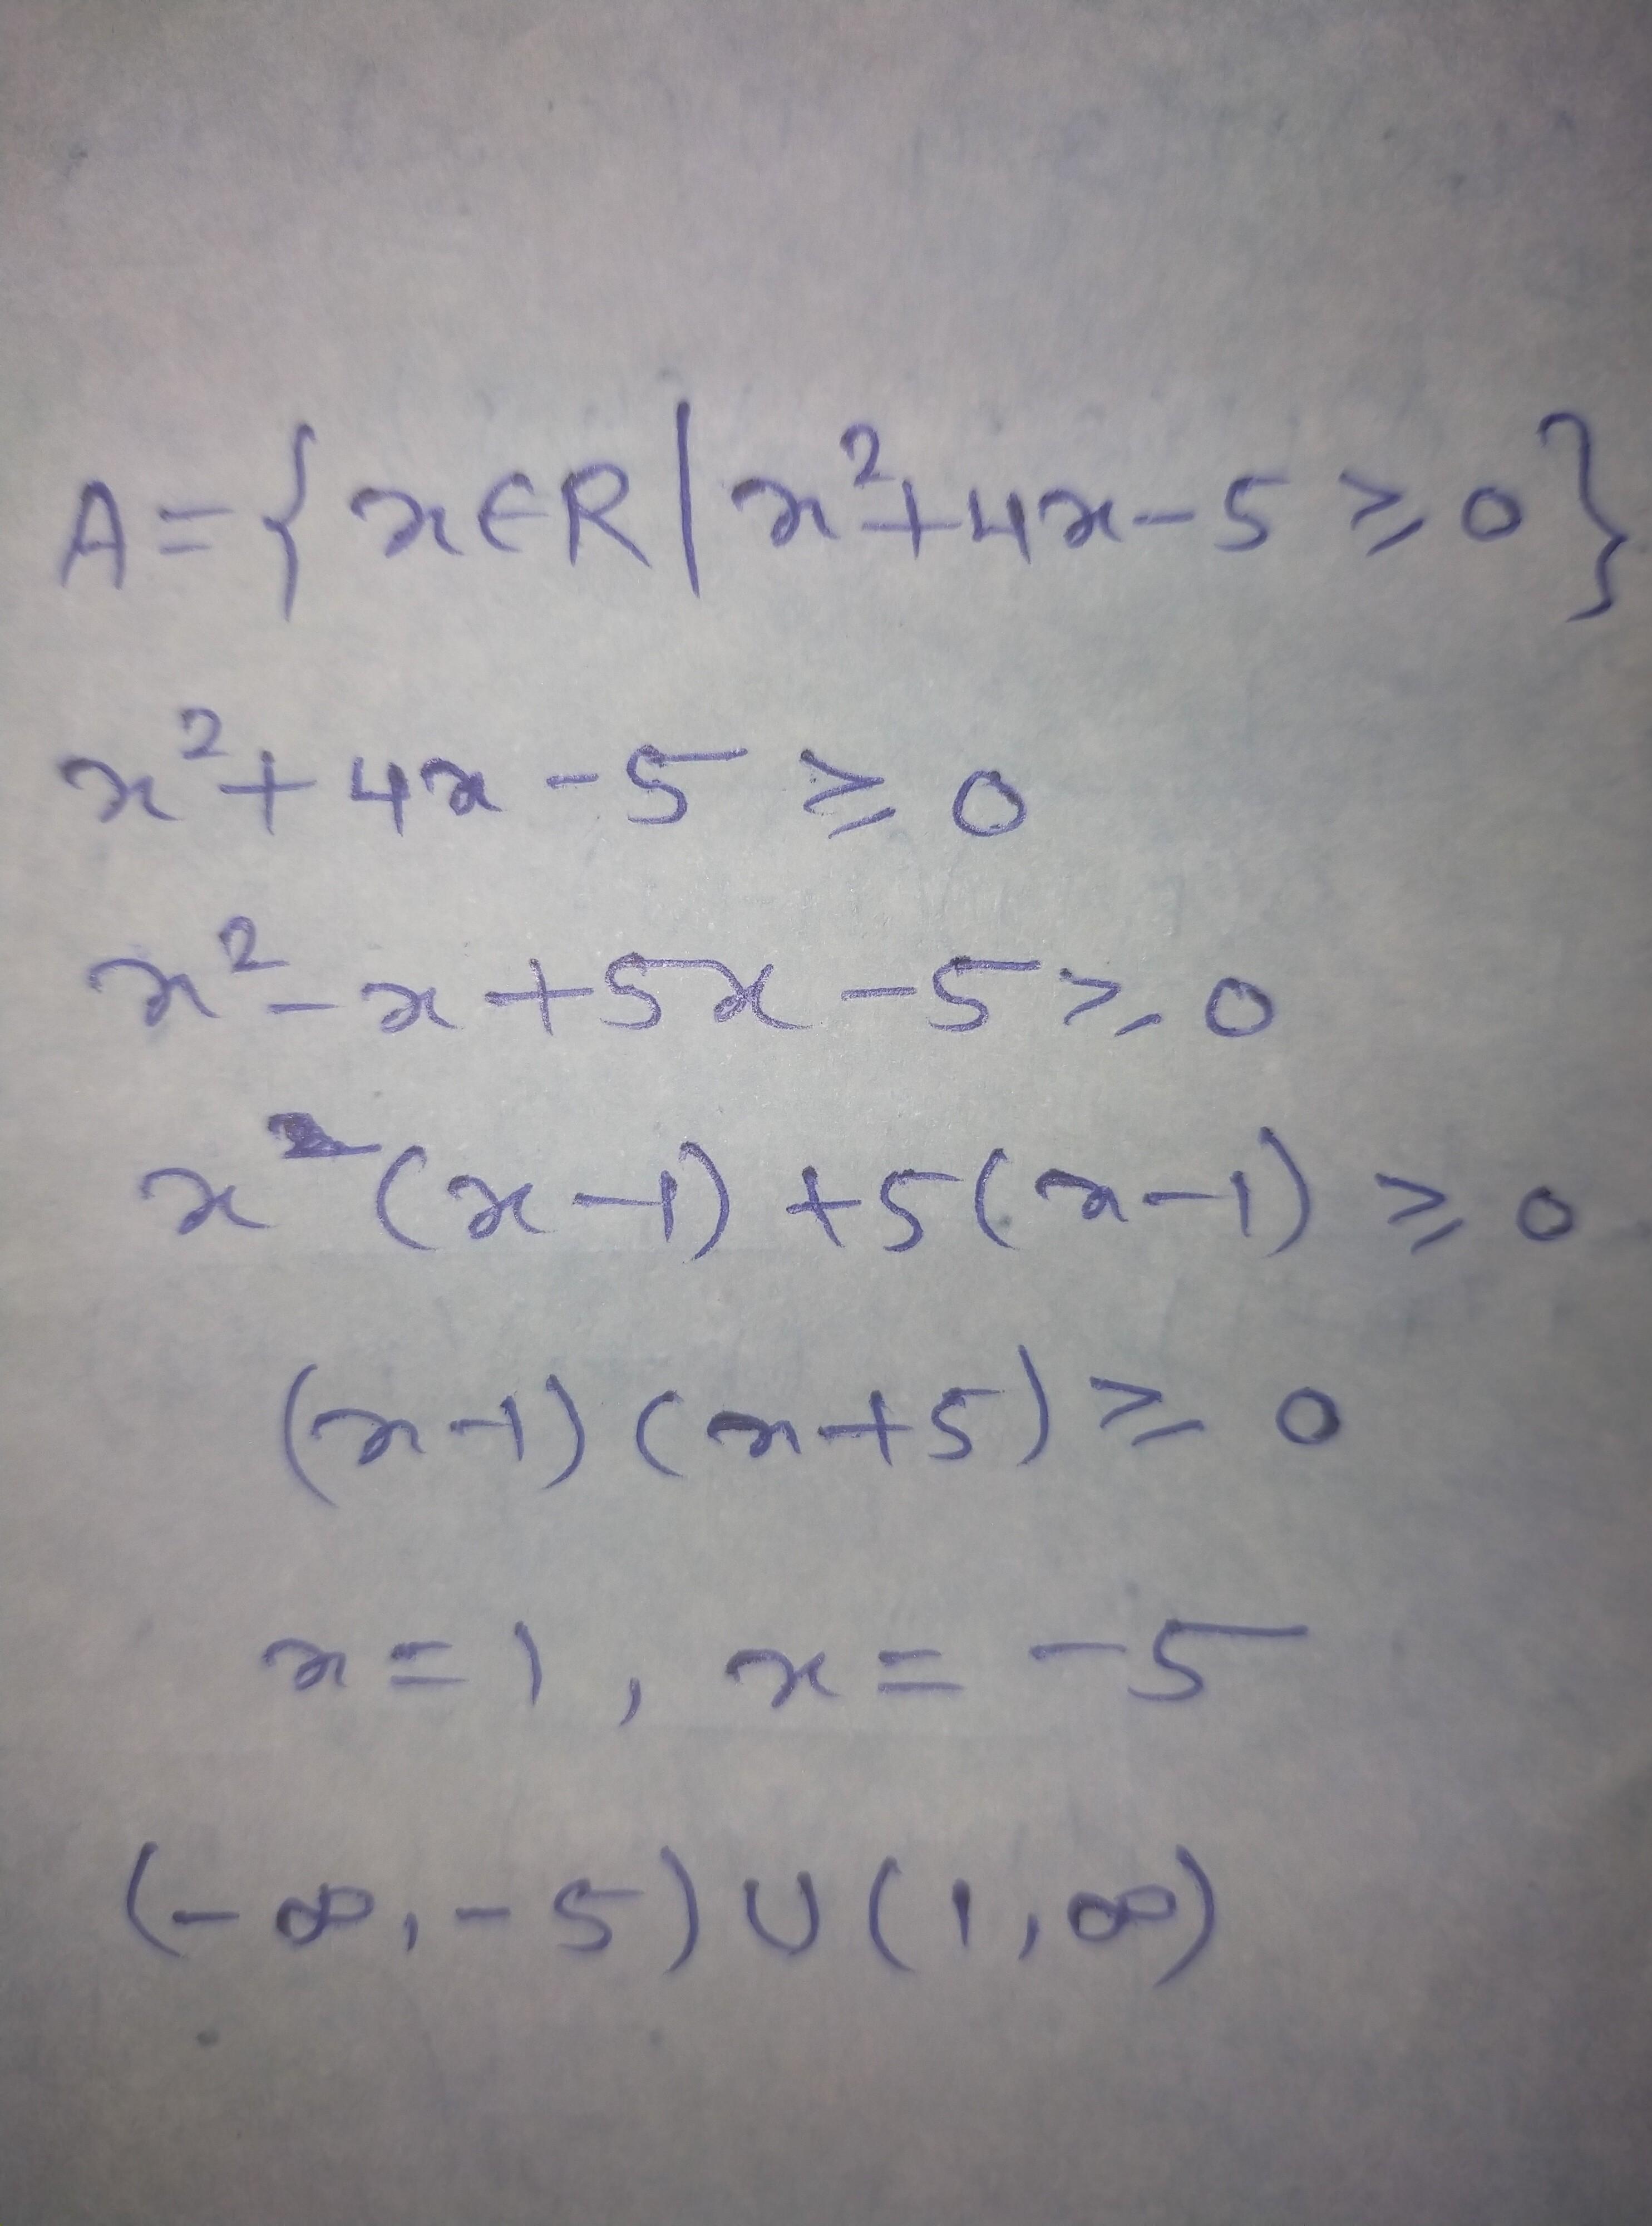 A = { x ∈ R | x² + 4x - 5 ≥ 0 }
x² + 4x - 5 ≥ 0
x² - x + 5x - 5 ≥ 0
x (x-1) + 5(x-1) ≥ 0
(x-1) (x+5) ≥ 0
x = 1 , x = -5
(-∞, -5) ∪ (1, ∞)